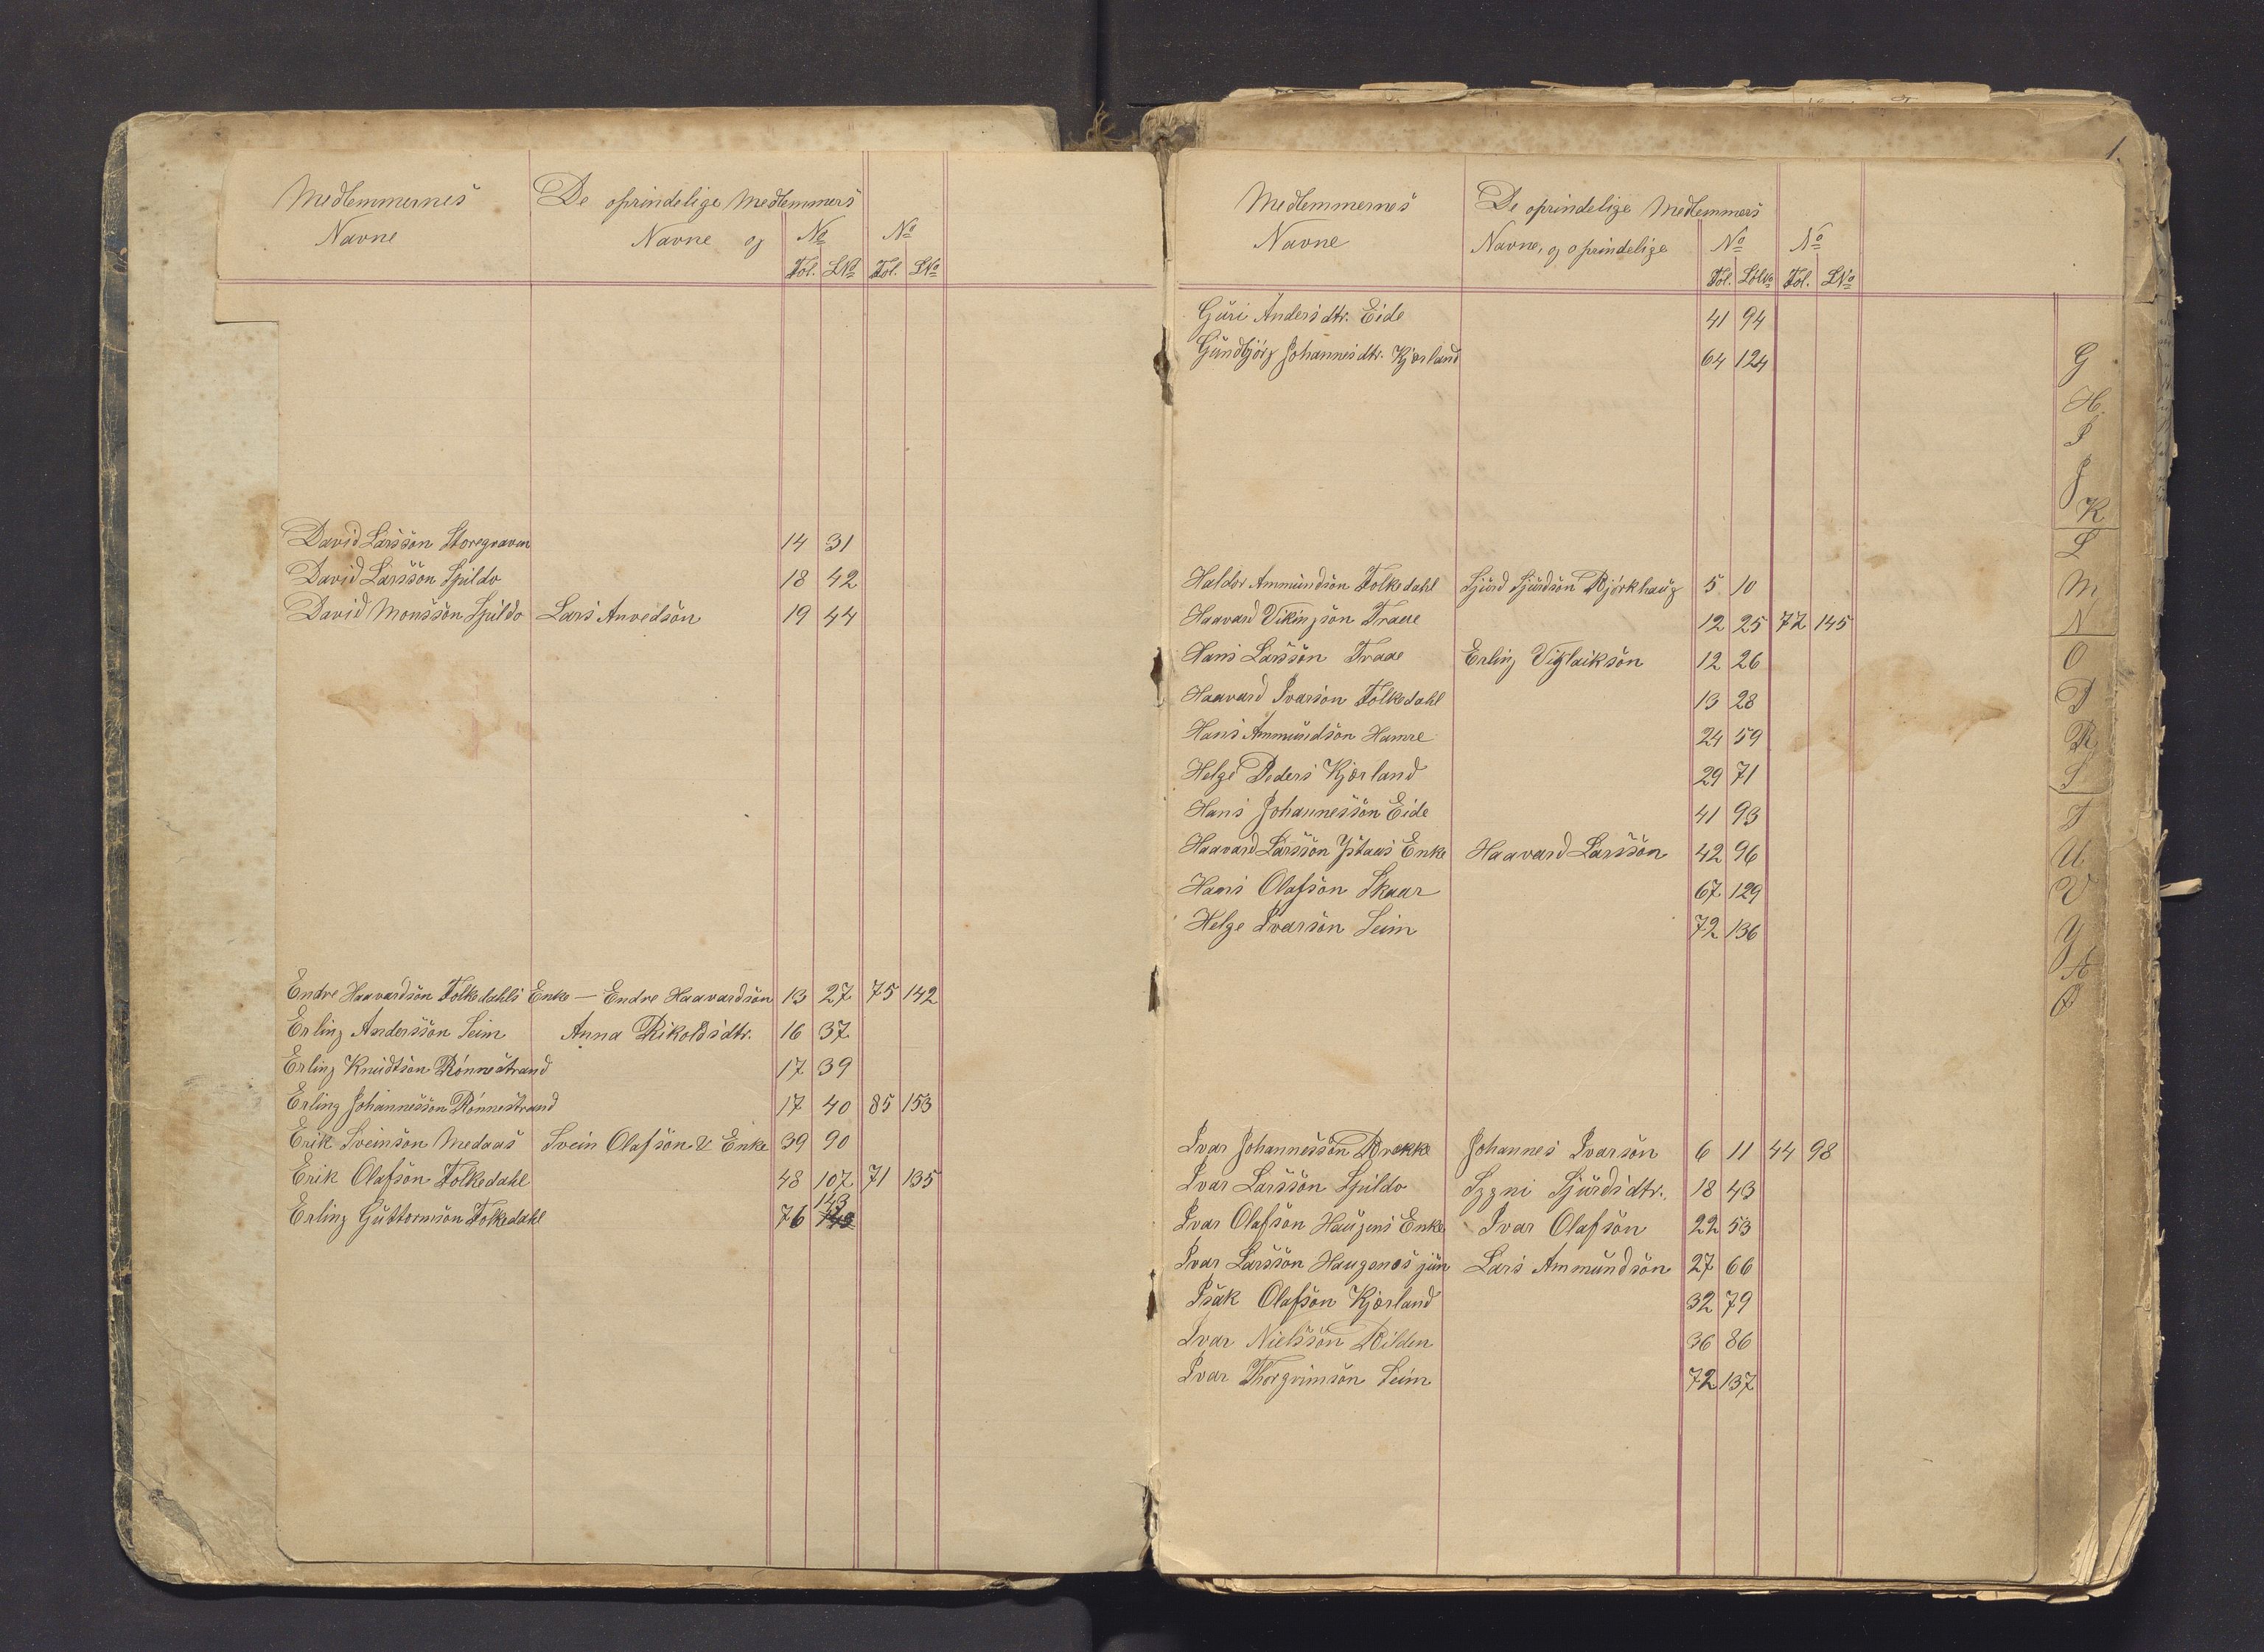 Medlemmernes De oprindelige Medlemmers
Navne Navne og No No
Fol. LNo Fol. LNo
David Larsson Storegraven 14 31
David Larsson Spildo 18 42
David Monsson Spildo Lars Anvedson 19 44
Endre Haavardson Folkedahls Enke — Endre Haavardson 13 27 75 142
Erling Andersson Seim Anna Rikolsdtr. 16 37
Erling Knudtson Rönnestrand 17 39
Erling Johannesson Rönnestrand 17 40 85 153
Erik Sveinson Medaas Svein Olafson & Enke 39 90
Erik Olafson Folkedahl 48 107 71 135
143
Erling Guttormson Folkedahl 76
1.
Medlemmernes De oprindelige Medlemmers
Navne Navne, og oprindelige No No
Fol. LolNo Fol. LNo
Guri Andersdtr. Eide 41 94
Gundbjörg Johannesdtr. Kjærland 64 124
Haldor Ammundson Folkedahl Sjurd Sjurdson Björkhaug 5 10
Haavard Vikingson Traae 12 25 77 145
Hans Larsson Traae Erling Viglaikson 12 26
Haavard Ivarson Folkedahl 13 28
Hans Ammundson Hamre 24 59
Helge Peders Kjærland 29 71
Hans Johannesson Eide 41 93
Haavard Larsson Ystaas Enke Haavard Larsson 42 96
Hans Olafson Skaar 67 129
Helge Ivarson Seim 72 136
Ivar Johannesson Brekke Johannes Ivarson 6 11 44 98
Ivar Larsson Spildo Sygni Sjurdsdtr. 18 43
Ivar Olafson Haugens Enke Ivar Olafson 22 53
Ivar Larsson Haugenes jun Lars Ammundson 27 66
Isak Olafson Kjærland 32 79
Ivar Nielsson Bilden 36 86
Ivar Thorgrimson Seim 72 137
G
H.
I
J
K
L
M
N
O
P
R
S
T
U
V
Y
Æ
Ø